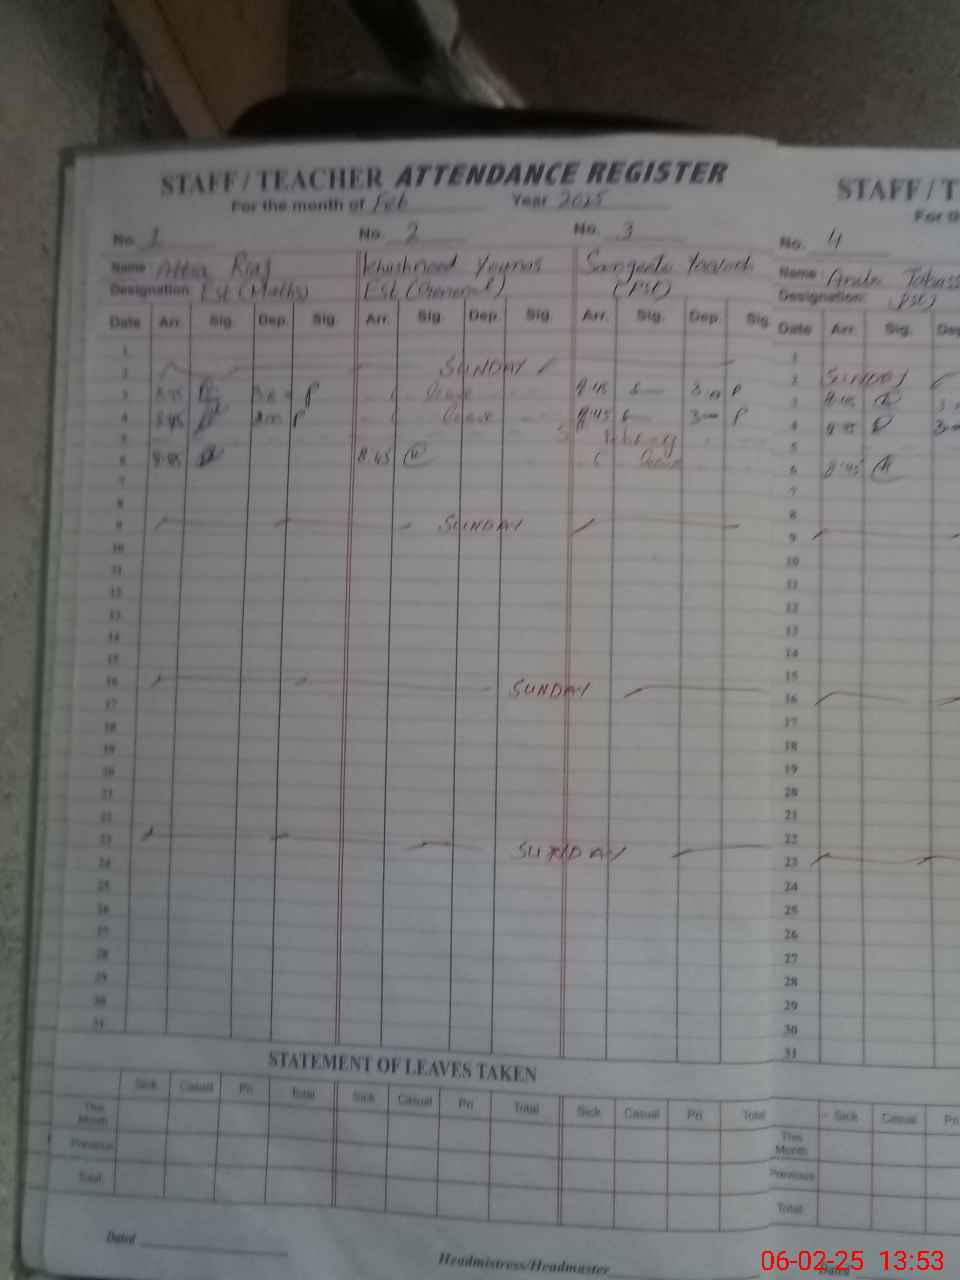 STAFF / TEACHER ATTENDANCE REGISTER
For the month of Feb Year 2025
No. 1 No. 2 No. 3
Name Attia Riaz Khushnood Younas Sangeeta
Designation Est (Maths) Est (General) (Pst)
Date Arr. Sig. Dep. Sig. Arr. Sig. Dep. Sig. Arr. Sig. Dep. Sig.
1
2 SUNDAY
3 8:45 P Leave 8:45 P
4 8:45 P Leave 8:45 P
5
6 8:45 8:45 Leave
7
8
9 SUNDAY
10
11
12
13
14
15
16 SUNDAY
17
18
19
20
21
22
23 SUNDAY
24
25
26
27
28
29
30
31
STATEMENT OF LEAVES TAKEN
Sick Casual Pri Total Sick Casual Pri Total Sick Casual Pri Total
This Month
Previous
Total
Dated
Headmistress/Headmaster
STAFF / T
For th
No. 4
Name
Designation: (PST)
Date Arr. Sig. Dep
1
2 SUNDAY
3 8:45
4 8:45
5
6 8:45
7
8
9
10
11
12
13
14
15
16
17
18
19
20
21
22
23
24
25
26
27
28
29
30
31
Sick Casual Pri
This Month
Previous
Total
Dated
06-02-25 13:53